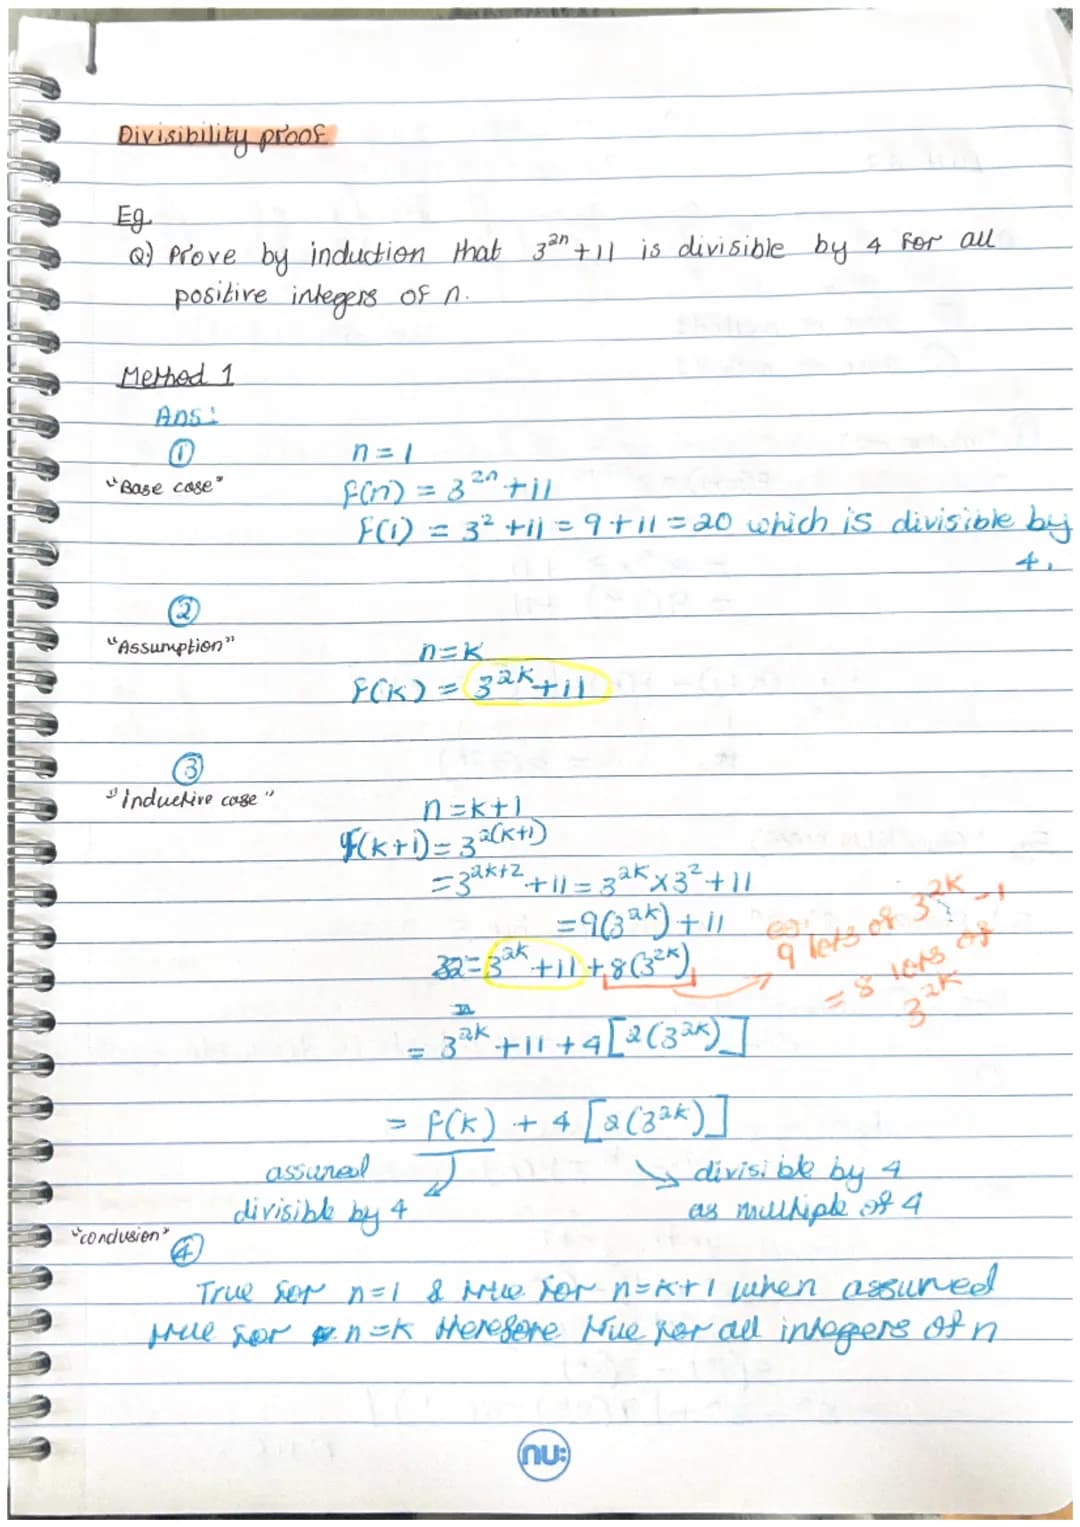 Divisibility proof
Eg.
Q) Prove by induction that 3^2n + 11 is divisible by 4 for all
positive integers of n.
Method 1
Ans:
① n = 1
"Base case" f(n) = 3^2n + 11
f(1) = 3² + 11 = 9 + 11 = 20 which is divisible by
4.
②
"Assumption" n = k
f(k) = 3^2k + 11
③
"inductive case" n = k+1
f(k+1) = 3^2(k+1)
= 3^2k+2 + 11 = 3^2k × 3² + 11
= 9(3^2k) + 11
= 3^2k + 11 + 8(3^2k)
9 lots of 3^2k - 1
= 8 lots of
3^2k
= 3^2k + 11 + 4[2(3^2k)]
= f(k) + 4[2(3^2k)]
assumed divisible by 4
divisible by 4 as multiple of 4
"conclusion"
④
True for n=1 & true for n=k+1 when assumed
true for n=k therefore true for all integers of n
nu: